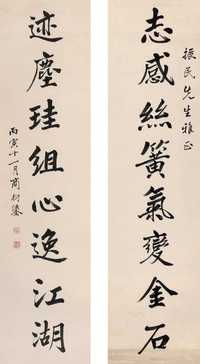 振民先生雅正
志感絲簧氣變金石
迹塵珪組心逸江湖
丙寅十一月商衍鎏